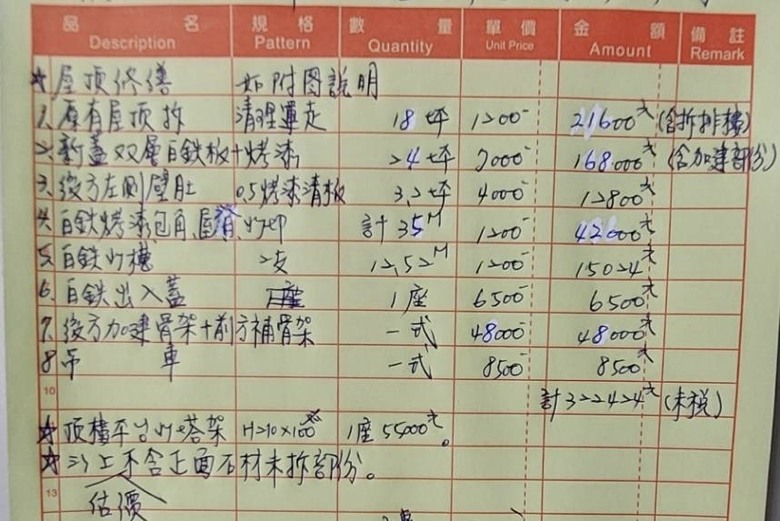 品名 規格 數量 單價 金額 備註
Description Pattern Quantity Unit Price Amount Remark
☆屋頂修繕 如附图說明
1、原有屋頂拆 清理運走 18坪 1200- 21600元 (含拆排樓)
2、新蓋双層白鉄板+烤漆 24坪 7000- 168000元 (含加建部份)
3、後方左側壁肚 0.5烤漆清板 3.2坪 4000- 12800元
4、白鉄烤漆包角、屋脊、 計35M 1200- 42000元
5、白鉄 2支 12.52M 1200- 15024元
6、白鉄出入蓋 1座 6500- 6500元
7、後方加建骨架+前方補骨架 一式 48000- 48000元
8、吊車 一式 8500- 8500元
10 計322424元 (未稅)
☆頂樓平台 塔架 H210×100 1座55000元。
☆以上不含正面石材未拆部份。
13 估價